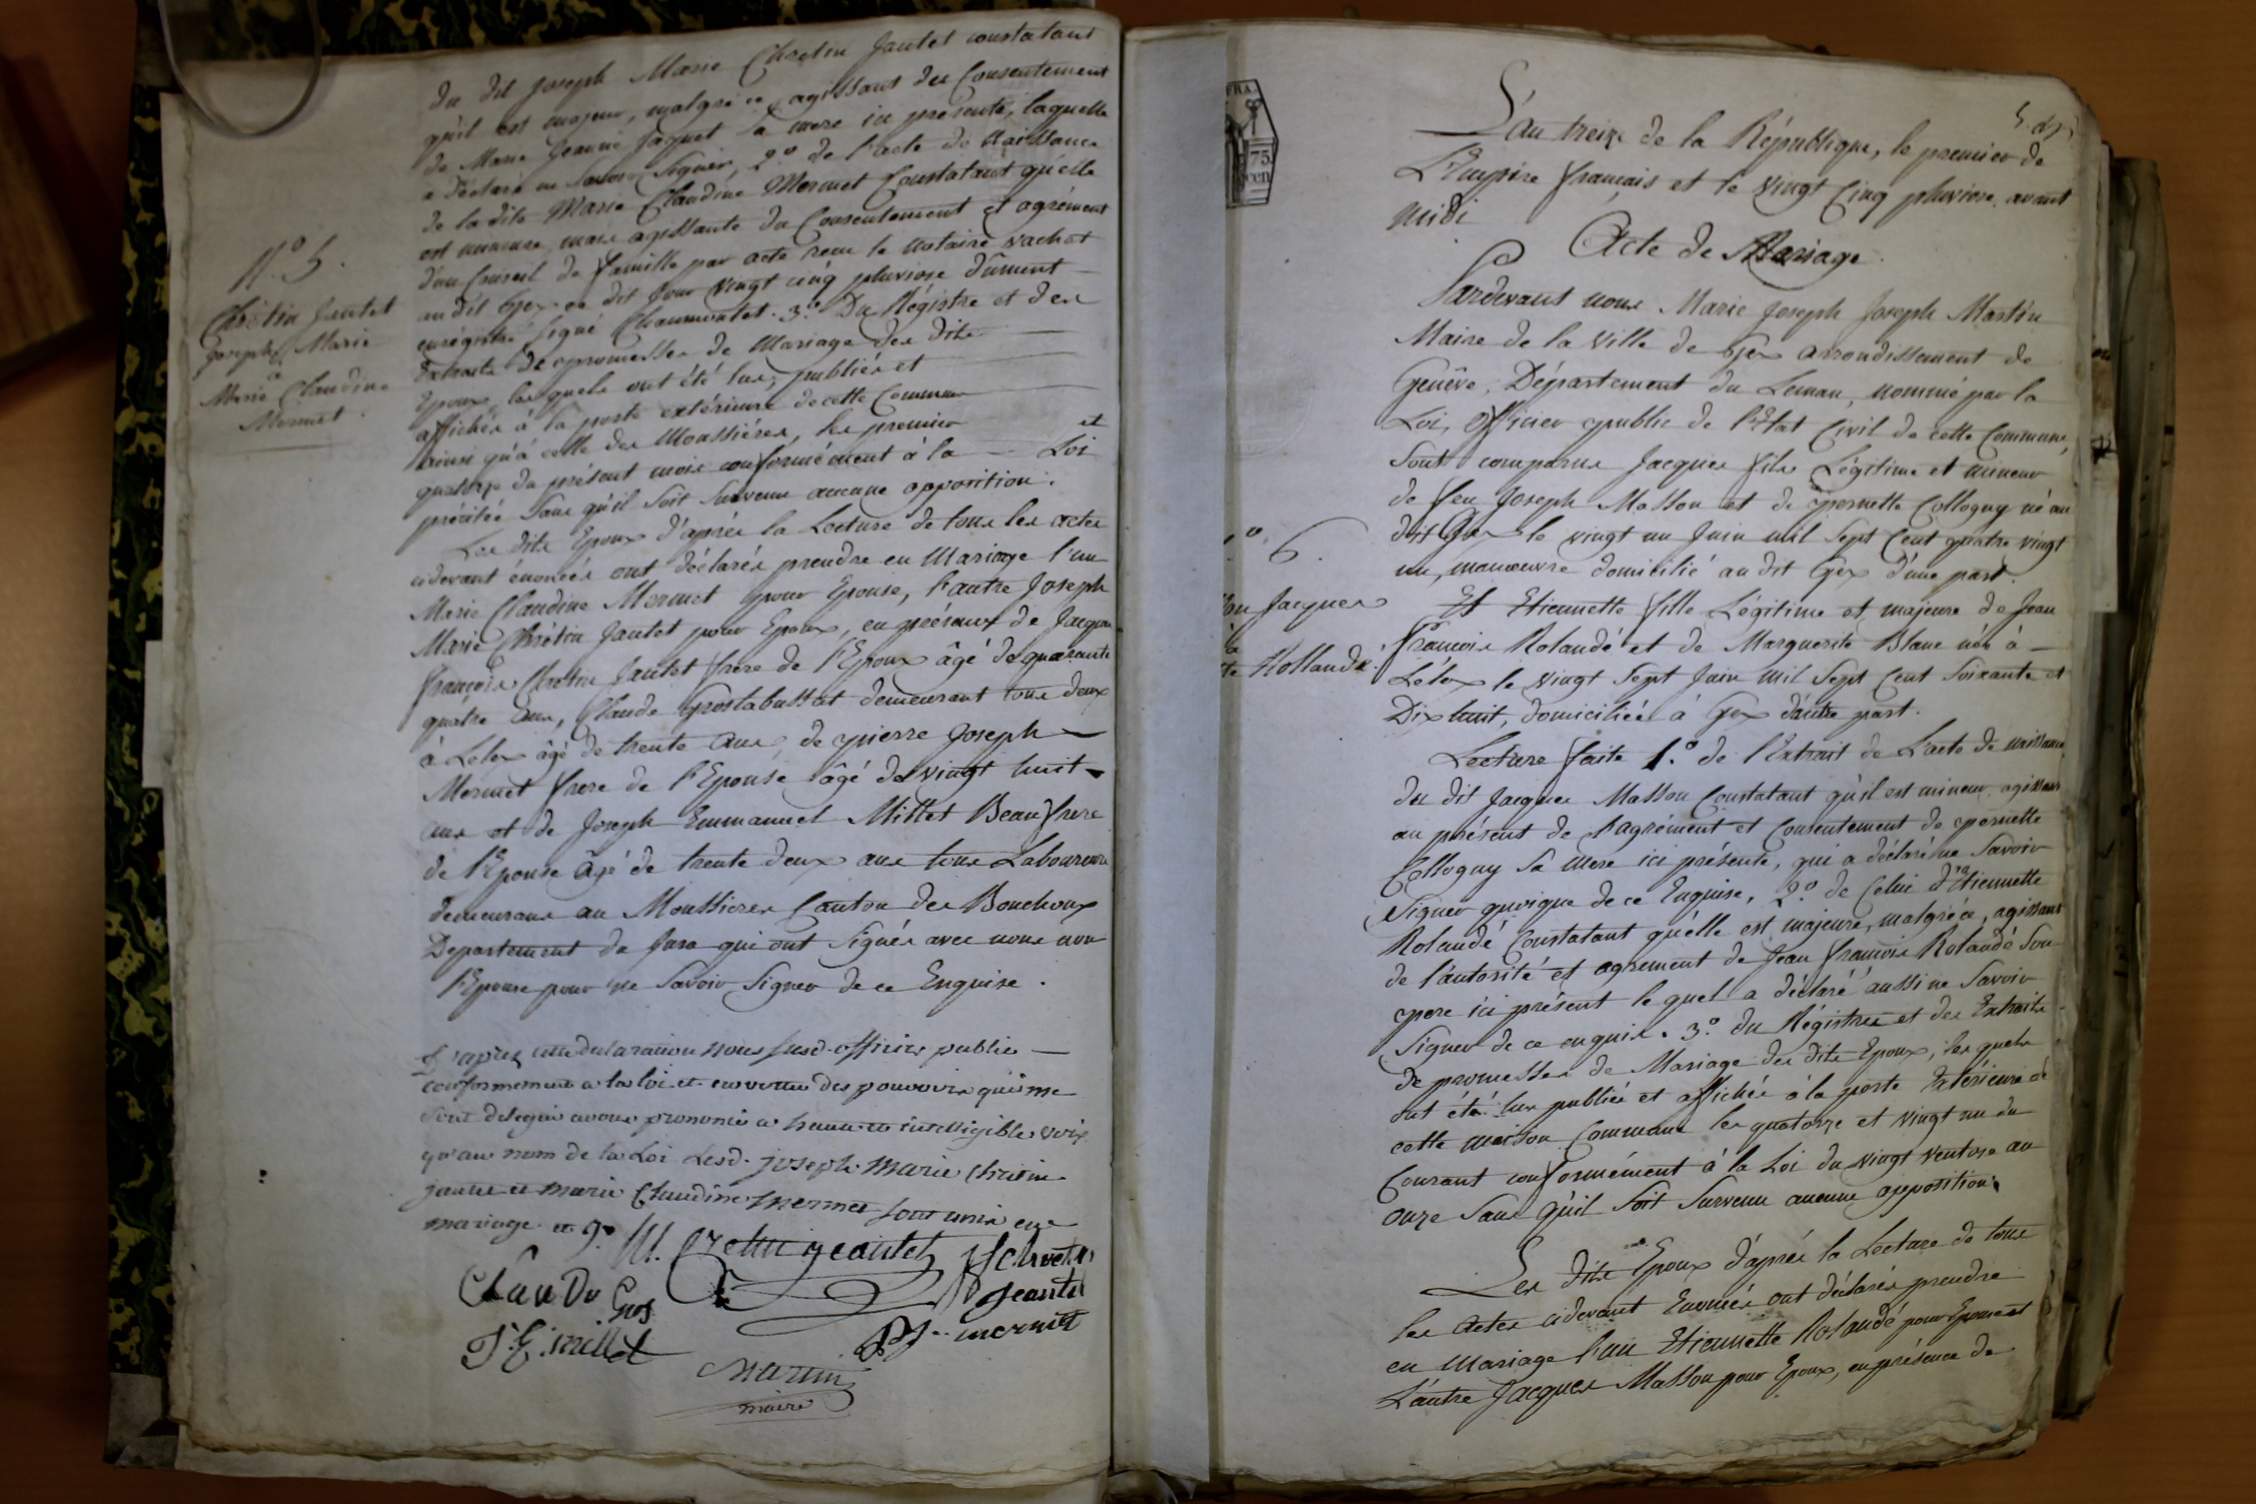 du dit Joseph Marie Chretin Jantet constatant
qu'il est majeur, malgré ce agissant du Consentement
de Marie Jeanne Jaquet sa mere ici présente, laquelle
a déclaré ne savoir signer, 2.º de l'acte de Naissance
de la dite Marie Claudine Mermet Constatant qu'elle
est mineure, mais agissante du Consentement et agrément
d'un Conseil de famille par acte recu le notaire vachat
au dit Gex ce dit Jour vingt cinq pluviose dûment
enrégistré signé Chaumontet. 3.º Du Régistre et des
Extraits de promesses de Mariage des dits
Epoux, lesquels ont été lus, publiés et
affichés à la porte extérieure de cette Commune
ainsi qu'à celle des Moussières, les premier et
quatorze du présent mois conformément à la Loi
précitée sans qu'il soit survenu aucune opposition.
Les dits Epoux d'après la Lecture de tous les actes
cidevant énoncés ont déclarés prendre en Mariage l'un
Marie Claudine Mermet pour Epouse, l'autre Joseph
Marie Chrétin Jantet pour Epoux, en présence de Jacques
François Chretin Jantet frere de l'Epoux âgé de quarante
quatre ans, Claude Grostabussiat demeurant tous deux
à Lelex âgé de trente ans, de pierre Joseph
Mermet frere de l'Epouse âgé de vingt huit
ans et de Joseph Emmanuel Millet Beau frere
de l'Epouse âgé de trente deux ans tous Laboureurs
demeurans au Moussieres Canton des Bouchoux
Departement du Jura qui ont signés avec nous non
l'Epouse pour ne savoir signer de ce Enquise.
D'après cette declaration nous susd. officier public
conformement a la loi et en vertu des pouvoirs qui me
sont delegués avons prononcé a haute et intelligible voix
qu'au nom de la Loi Lesd. joseph marie chretin
jantet et marie Claudine mermet sont unis en
mariage
M. Cretin jeantet
Claudu Gros
jeantet
J. E. millet
P J. mermet
martin
maire
N.º 5.
Chrétin Jantet
Joseph Marie
et
Marie Claudine
Mermet.
FRA.
75
cen
L'an treize de la République, le premier de
L'Empire français et le vingt Cinq pluviose avant
midi
Acte de Mariage.
Pardevant nous Marie Joseph Joseph Martin
Maire de la Ville de Gex arrondissement de
Genêve, Département du Leman, nommé par la
Loi, Officier public de l'Etat Civil de cette Commune,
Sont comparus Jacques fils Légitime et mineur
de feu Joseph Masson et de pernette Collogny né au
dit Gex le vingt un Juin mil Sept Cent quatre vingt
un, manoeuvre domicilié au dit Gex d'une part.
Et Etiennette fille Légitime et majeure de Jean
François Rolandé et de Marguerite Blanc née à
Lélex le vingt Sept Juin mil Sept Cent Soixante et
Dix huit, domiciliée à Gex d'autre part.
Lecture faite 1.º de l'Extrait de L'acte de naissance
du dit Jacques Masson Constatant qu'il est mineur, agissant
au présent de l'agrément et Consentement de pernette
Collogny sa mere ici présente, qui a déclaré ne Savoir
Signer quoique de ce Enquise, 2.º de Celui d'Etiennette
Rolandé Constatant qu'elle est majeure, malgré ce, agissant
de l'autorité et agrement de Jean François Rolandé Son
pere ici présent le quel a déclaré aussi ne Savoir
Signer de ce enquis. 3.º du Régistre et des Extraits
de promesses de Mariage des dits Epoux, les quels
ont été lus publiés et affichés à la porte Extérieure de
cette maison Commune les quatorze et vingt un du
Courant conformément à la Loi du vingt Ventose an
onze Sans qu'il Soit Survenu aucune opposition.
Les dits Epoux d'après la Lecture de tous
les actes cidevant Enoncés ont déclarés prendre
en Mariage l'un Etiennette Rolandé pour Epouse et
L'autre Jacques Masson pour Epoux, en présence de
6.
Jacques
Rollandé.